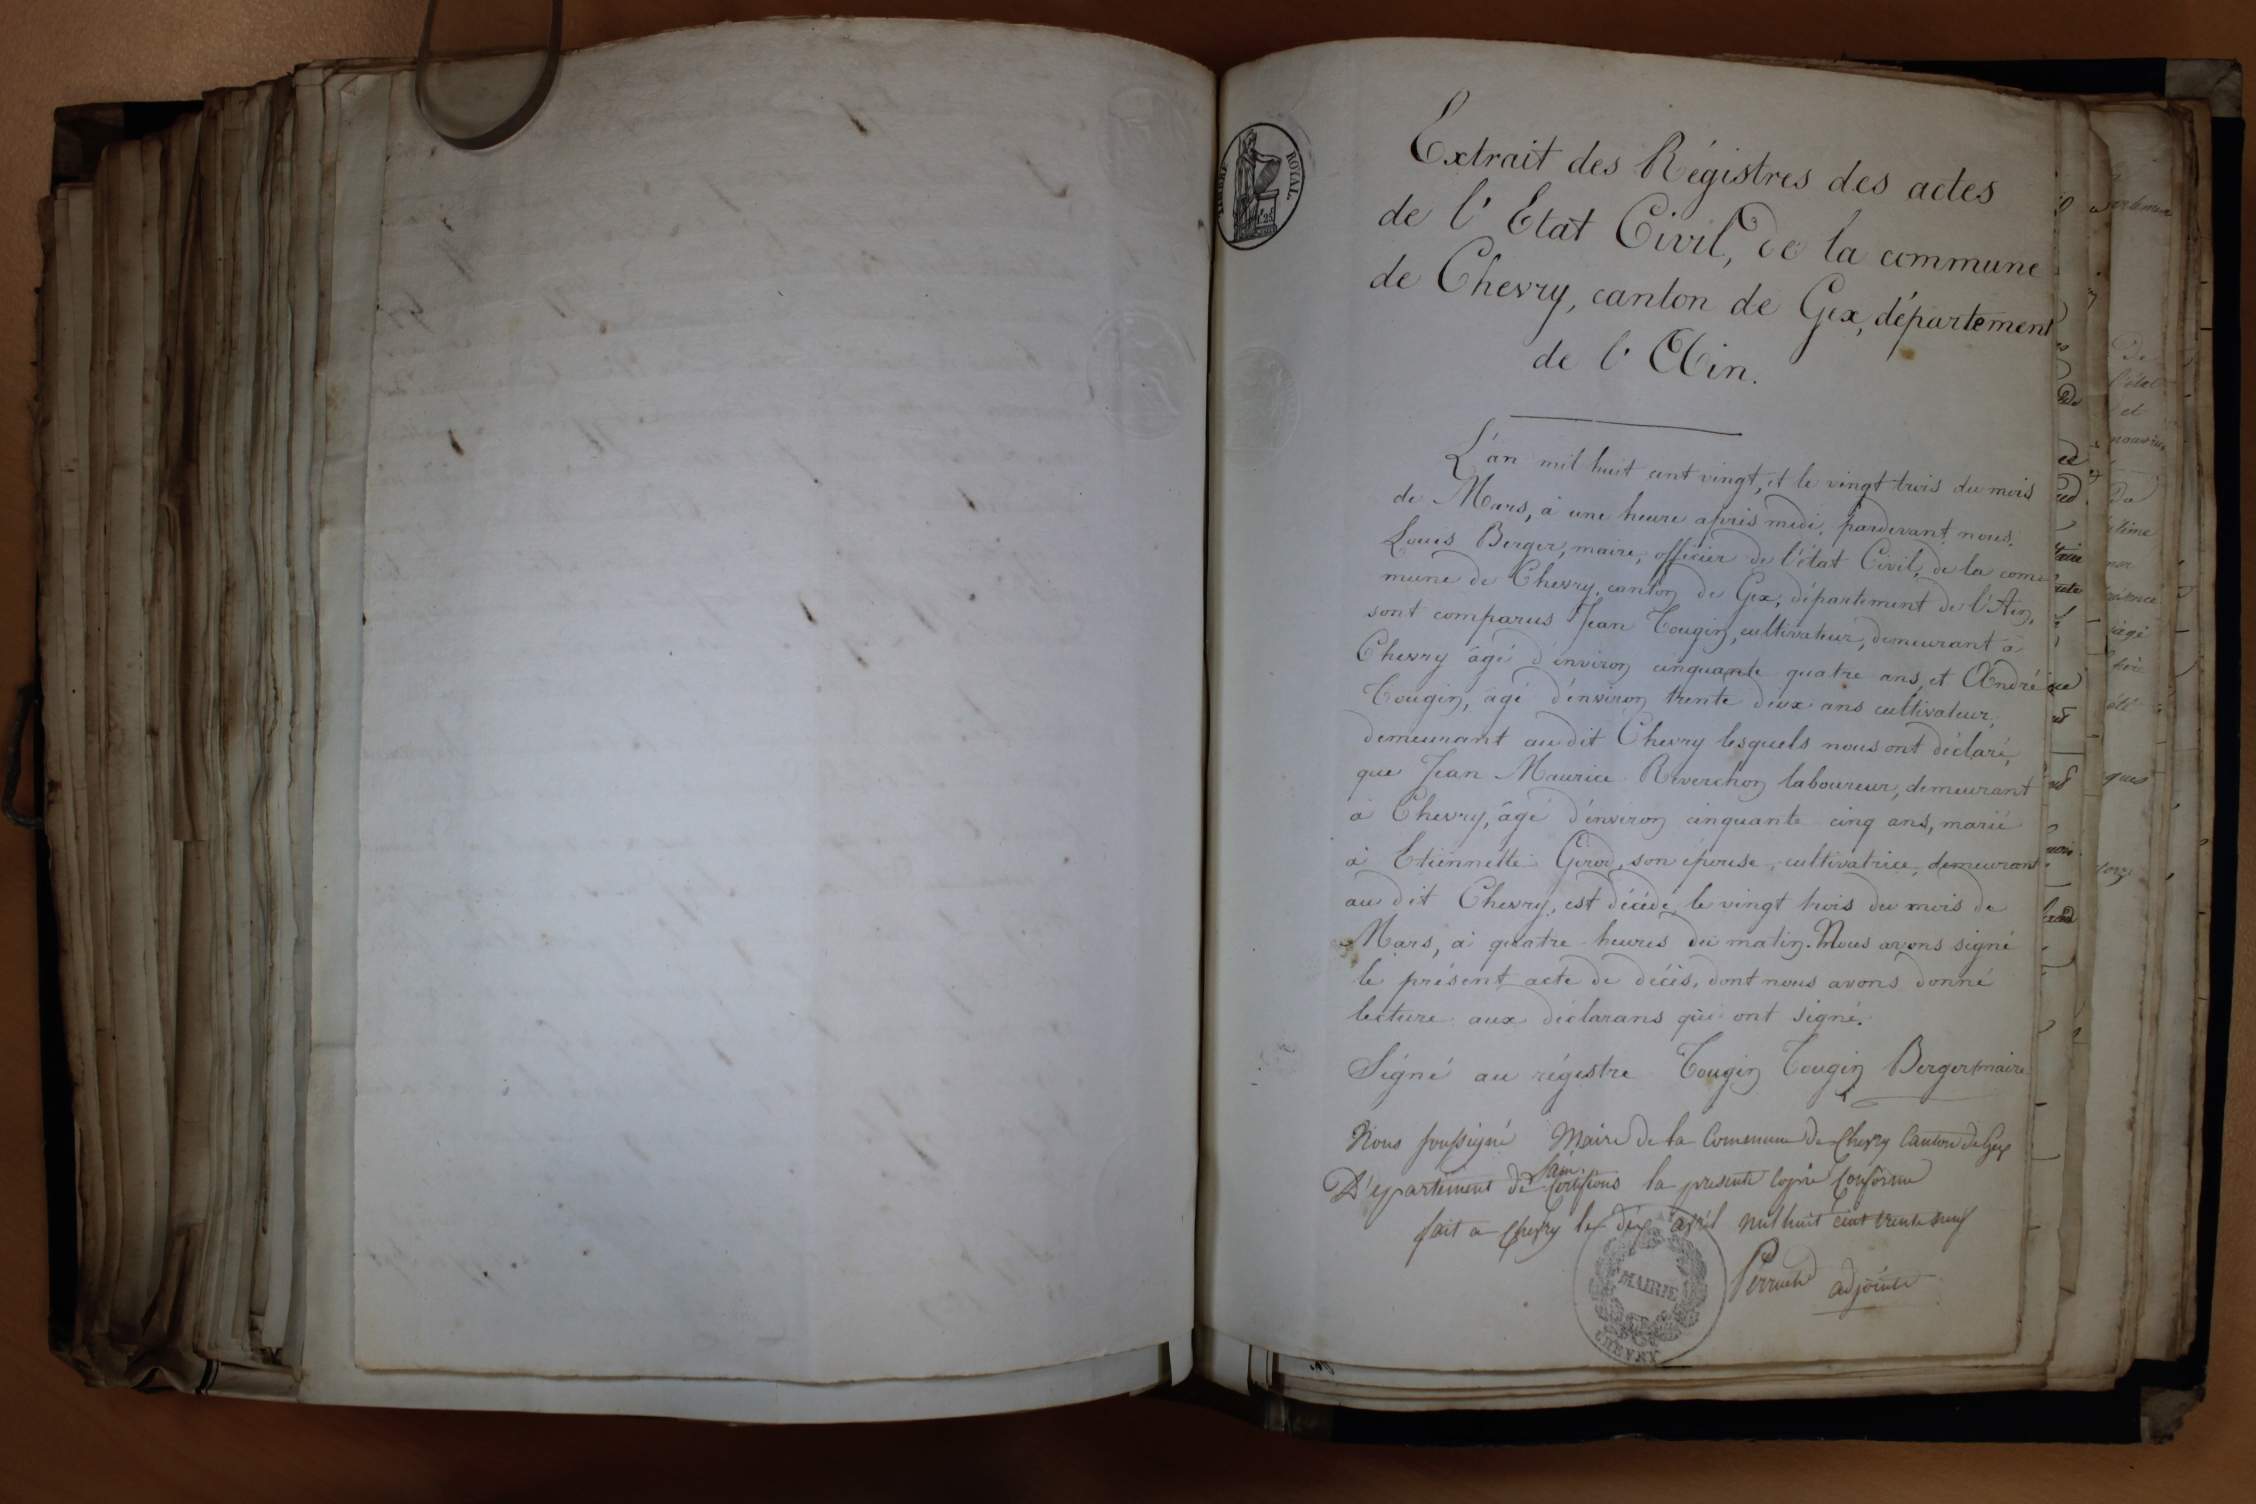 TIMBRE ROYAL
1f 25
Extrait des Régistres des actes
de l'Etat Civil, de la commune
de Chevry, canton de Gex, département
de l'Ain.
L'an mil huit cent vingt, et le vingt trois du mois
de Mars, à une heure après midi, pardevant nous.
Louis Berger, maire, officier de l'état Civil, de la com
mune de Chevry, canton de Gex, département de l'Ain,
sont comparus Jean Tougin, cultivateur, demeurant à
Chevry âgé d'environ cinquante quatre ans, et André
Tougin, âgé d'environ trente deux ans cultivateur,
demeurant audit Chevry lesquels nous ont déclaré,
que Jean Maurice Reverchon laboureur, demeurant
à Chevry, âgé d'environ cinquante cinq ans, marié
à Etiennette Girod, son épouse, cultivatrice, demeurant
au dit Chevry, est décédé le vingt trois du mois de
Mars, à quatre heures du matin. Nous avons signé
le présent acte de décès, dont nous avons donné
lecture aux déclarans qui ont signé.
Signé au régistre Tougin Tougin Berger maire
Nous soussigné Maire de la Commune de Chevry Canton de Gex
Département de l'ain Certifions la presente Copie Conforme
fait a Chevry le dix avril mil huit cent trente neuf
adjoint
MAIRIE
CHEVRY